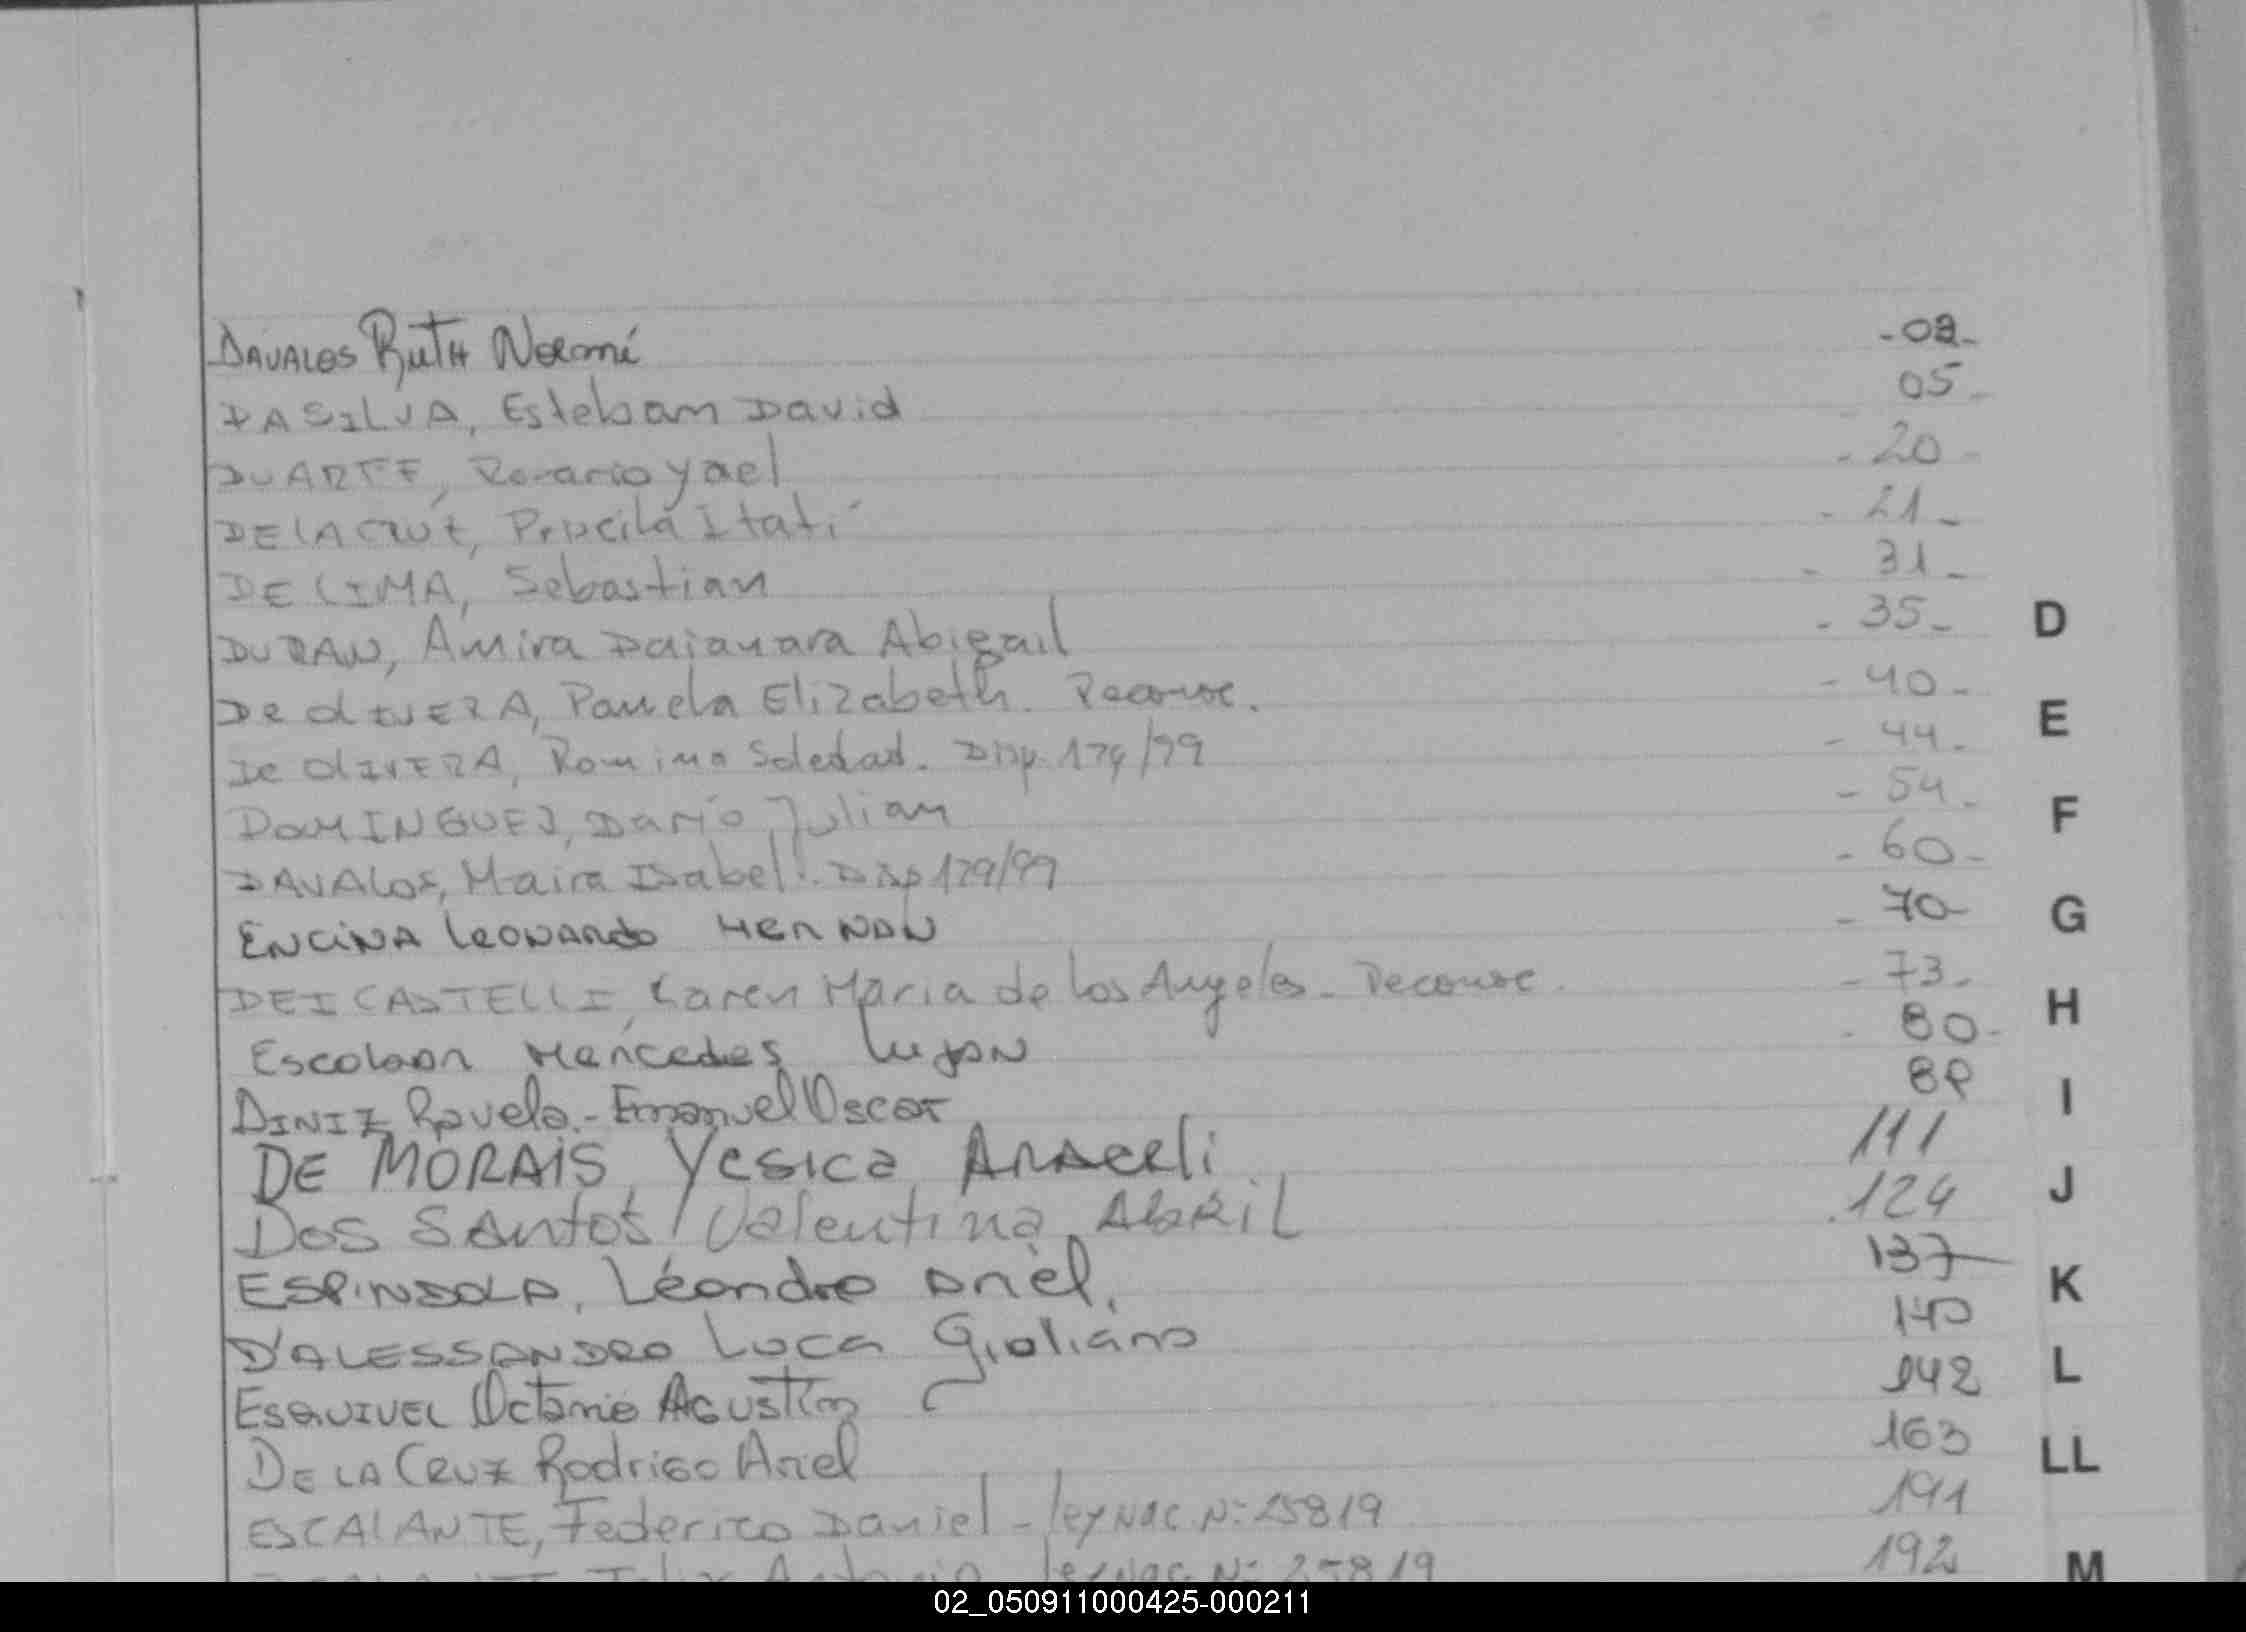 DAVALOS Ruth Noemí -02-
DASILVA, Esteban David 05-
DUARTE, Rosario Yael -20-
DE LA CRUZ, Priscila Itatí -21-
DE LIMA, Sebastian -31-
DURAN, Amira Daianara Abigail -35-
De OLIVERA, Pamela Elizabeth. -40-
De OLIVERA, Romina Soledad. Disp. 179/99 -44-
DOMINGUEZ, Darío Julian -54-
DAVALOS, Maira Isabel. Disp 179/99 -60-
ENCINA LEONARDO HERNAN -70-
DEI CASTELLI, Karen Maria de los Angeles - -73-
Escobar Mercedes Lujan -80-
DINIZ Ravelo.- Emanuel Oscar
DE MORAIS, Yesica Araceli 111
Dos Santos, Valentina Abril 124
ESPINDOLA, Leandro Ariel, 137
D'ALESSANDRO Luca Giuliano 140
ESQUIVEL Octavio Agustín 142
DE LA CRUZ Rodrigo Ariel 163
ESCALANTE, Federico Daniel - ley Nac. N: 25819 191
Antonio ley Nac. N: 25819 192
D
E
F
G
H
I
J
K
L
LL
M
02_050911000425-000211